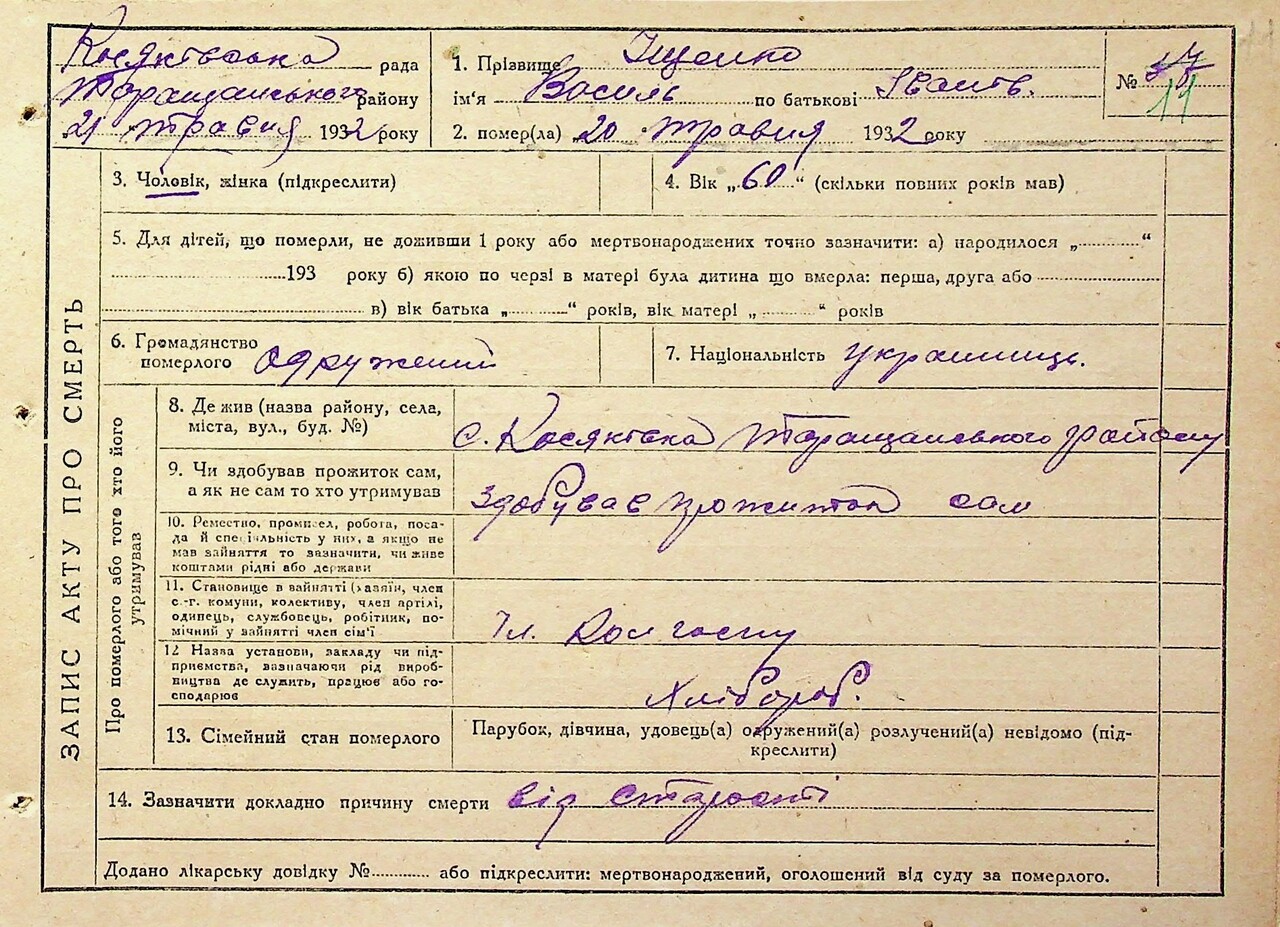 Косяківська рада
Таращанського району
21 травня 1932 року
1. Прізвище Іщенко
ім'я Василь по батькові Іванів.
2. помер(ла) 20 травня 1932 року
№ 11
ЗАПИС АКТУ ПРО СМЕРТЬ
3. Чоловік, жінка (підкреслити)
4. Вік „60“ (скільки повних років мав)
5. Для дітей, що померли, не доживши 1 року або мертвонароджених точно зазначити: а) народилося „............“
............193 року б) якою по черзі в матері була дитина що вмерла: перша, друга або............
............ в) вік батька „............“ років, вік матері „............“ років
6. Громадянство
померлого одружений
7. Національність українець.
Про померлого або того хто його
утримував
8. Де жив (назва району, села,
міста, вул., буд. №)
с. Косяківка Таращанського району
9. Чи здобував прожиток сам,
а як не сам то хто утримував
Здобував прожиток сам
10. Ремество, промисел, робота, поса-
да й спеціяльність у них, а якщо не
мав зайняття то зазначити, чи живе
коштами рідні або держави
11. Становище в зайнятті (хазяїн, член
с.-г. комуни, колективу, член артілі,
одинець, службовець, робітник, по-
мічний у зайнятті член сім'ї
Чл. Колгоспу
12 Назва установи, закладу чи під-
приємства, зазначаючи рід вироб-
ництва де служить, працює або го-
сподарює
Хлібороб.
13. Сімейний стан померлого
Парубок, дівчина, удовець(а) одружений(а) розлучений(а) невідомо (під-
креслити)
14. Зазначити докладно причину смерти від старості
Додано лікарську довідку №............ або підкреслити: мертвонароджений, оголошений від суду за померлого.